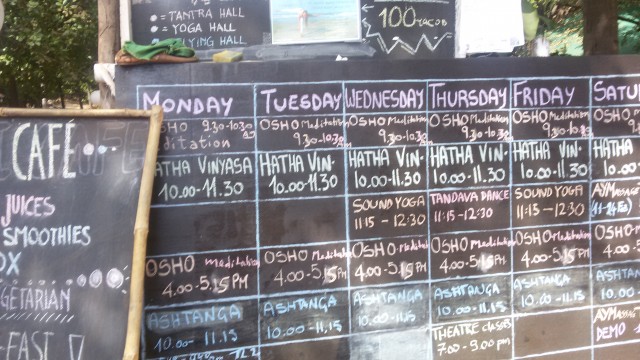 = TANTRA HALL
= YOGA HALL
YING HALL
100 ЧАСОВ
CAFÉ
JUICES
SMOOTHIES
OX
GETARIAN
-FAST
MONDAY TUESDAY WEDNESDAY THURSDAY FRIDAY SATU
OSHO 9.30-10.30 OSHO Meditation OSHO Meditation OSHO Meditation OSHO Meditation OSHO
ditation 9.30-10.30 9.30-10.30 9.30-10.30 9.30-10.30
HATHA VINYASA HATHA VIN. HATHA VIN. HATHA VIN. HATHA VIN. HATHA
10.00-11.30 10.00-11.30 10.00-11.30 10.00-11.30 10.00-11.30 10.00
SOUND YOGA TANDAVA DANCE SOUND YOGA
11:15 - 12:30 11:15 - 12:30 11:15 - 12:30
OSHO meditation OSHO Meditation OSHO Meditation OSHO Meditation OSHO Meditation OSHO
4.00-5.15 PM 4.00-5.15 PM 4.00-5.15 PM 4.00-5.15 PM 4.00-5.15 PM 4.00
ASHTANGA ASHTANGA ASHTANGA ASHTANGA ASHTANGA ASHTA
10.00-11.15 10.00-11.15 10.00-11.15 10.00-11.15 10.00-11.15 10.00
THEATRE classes
7.00-9.00 PM DEMO